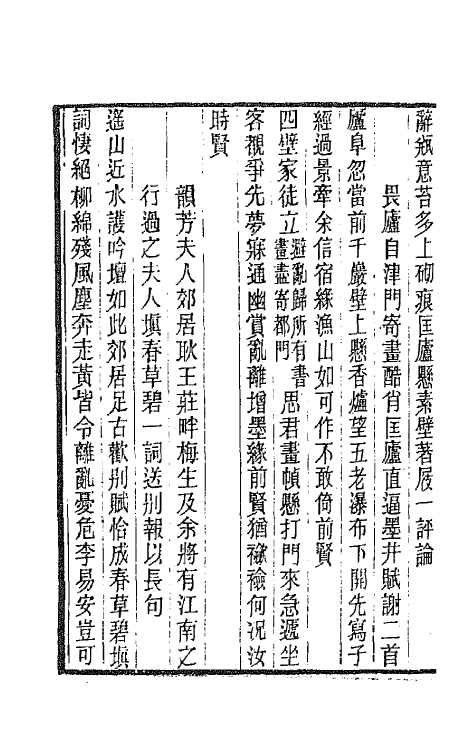 辭瓻意苔多上砌痕匡廬懸素壁著屐一評論
畏廬自津門寄畫酷肖匡廬直逼墨井賦謝二首
廬阜忽當前千巖壁上懸香爐望五老瀑布下開先寫子
經過景牽余信宿緣漁山如可作不敢倚前賢
四壁家徒立避亂歸所有書畫盡寄都門思君畫幀懸打門來急遞坐
客觀爭先夢寐通幽賞亂離增墨緣前賢猶襟襝何况汝
時賢
韻芳夫人郊居耿王莊畔梅生及余將有江南之
行過之夫人塡春草碧一詞送別報以長句
遥山近水護吟壇如此郊居足古歡別賦恰成春草碧塡
詞悽絕柳綿殘風塵奔走黃皆令離亂憂危李易安豈可